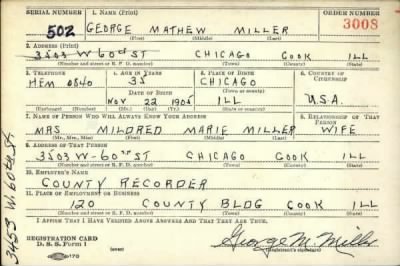 SERIAL NUMBER 1. NAME (Print) ORDER NUMBER
502 GEORGE MATHEW MILLER 3008
(First) (Middle) (Last)
2. ADDRESS (Print)
3503 W 60th ST CHICAGO COOK ILL
(Number and street or R. F. D. number) (Town) (County) (State)
3. TELEPHONE 4. AGE IN YEARS 5. PLACE OF BIRTH 6. COUNTRY OF CITIZENSHIP
HEM 0840 35 CHICAGO
DATE OF BIRTH (Town or county)
NOV 22 1905 ILL U.S.A.
(Exchange) (Number) (Mo.) (Day) (Yr.) (State or country)
7. NAME OF PERSON WHO WILL ALWAYS KNOW YOUR ADDRESS 8. RELATIONSHIP OF THAT PERSON
MRS MILDRED MARIE MILLER WIFE
(Mr., Mrs., Miss) (First) (Middle) (Last)
9. ADDRESS OF THAT PERSON
3503 W-60TH ST CHICAGO COOK ILL
(Number and street or R. F. D. number) (Town) (County) (State)
10. EMPLOYER'S NAME
COUNTY RECORDER
11. PLACE OF EMPLOYMENT OR BUSINESS
120 COUNTY BLDG COOK ILL
(Number and street or R. F. D. number) (Town) (County) (State)
I AFFIRM THAT I HAVE VERIFIED ABOVE ANSWERS AND THAT THEY ARE TRUE.
REGISTRATION CARD
D. S. S. Form 1 George M. Miller
(Registrant's signature)
3453 W. 60th St